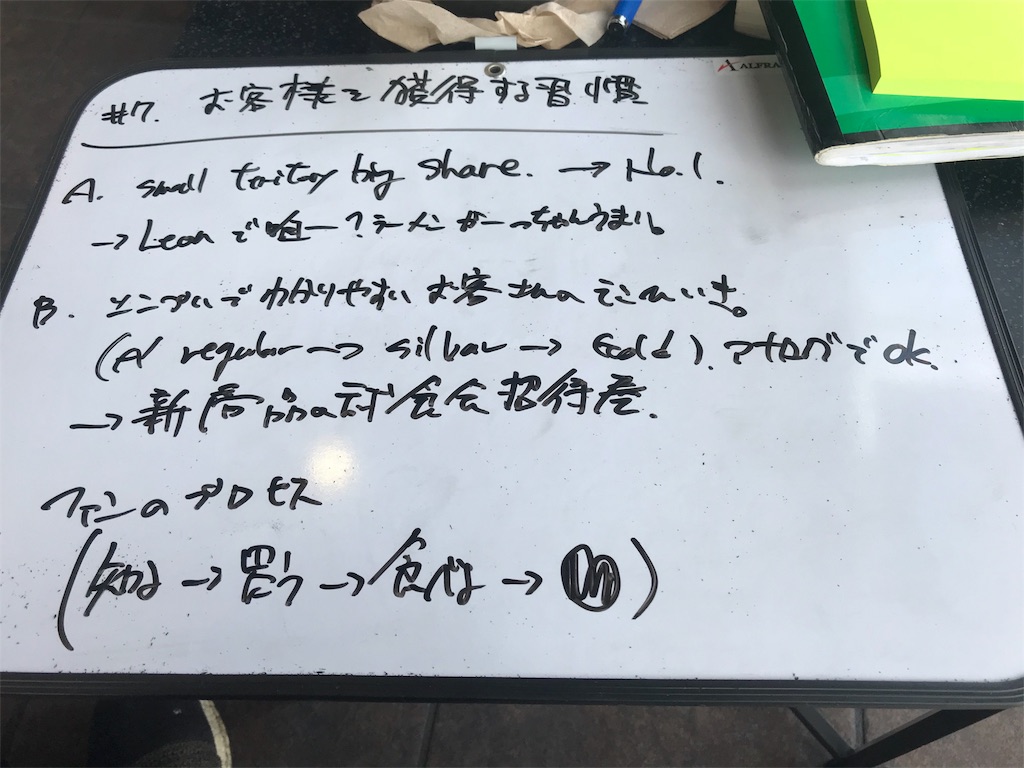 ALFRA
#7. お客様を獲得する習慣
A. small big share. → No.1.
→ Leanで唯一?ラーメン かーっちゃんうまい。
B. シンプルでわかりやすいお客さんの
(A/ regular → silbar → Gold). アナログでok.
→ 新商品の試食会招待産.
ファンのプロセス
(知る → 買う → 食べる → )